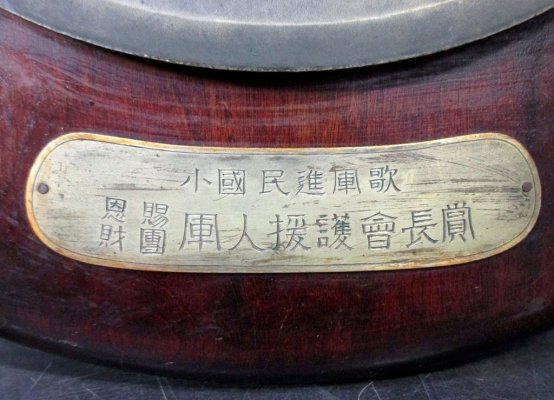 小國民進軍歌
恩賜財團 軍人援護會長賞